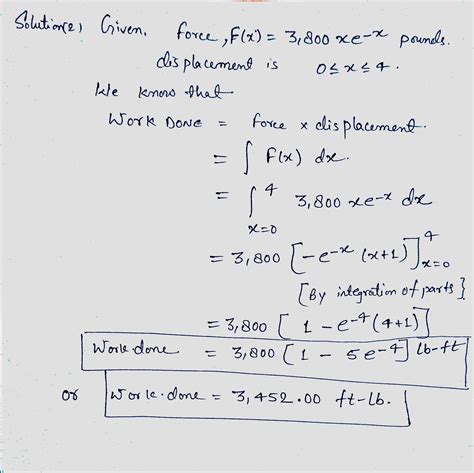 Solution(2) Given, force, F(x) = 3,800 xe^-x pounds.
displacement is 0 ≤ x ≤ 4.
We know that
Work Done = force x displacement.
= ∫ F(x) dx.
= ∫_{x=0}^{4} 3,800 xe^-x dx
= 3,800 [-e^-x (x+1)]_{x=0}^{4}
[By integration of parts]
= 3,800 [1 - e^-4 (4+1)]
Work done = 3,800 [1 - 5e^-4] lb-ft
or Work.done = 3,452.00 ft-lb.